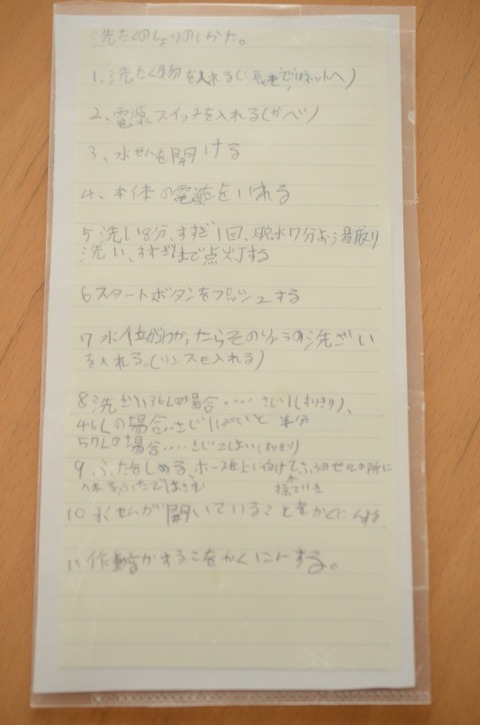 洗たくのしょりのしかた。
1、洗たく物を入れる(毛ネットへ)
2、電源スイッチを入れる(かべ)
3、水せんを開ける
4、本体の電源をいれる
5 洗い8分、すすぎ1回、脱水7分お湯取り
洗い、すすぎまで点灯する
6 スタートボタンをプッシュする
7 水位がわかったらそのりょうの洗ざい
を入れる。(リンスも入れる)
8 洗ざい36Lの場合‥‥さじ1(すりきり)、
46Lの場合‥さじ1ぱいと半分
57Lの場合‥‥さじ2はい(すりきり)
9 ふたをしめる、ホースを上に向けて
入れる。ふたではさむ
10 水せんが開いていることをかくにんする
11 作動音がすることをかくにんする。